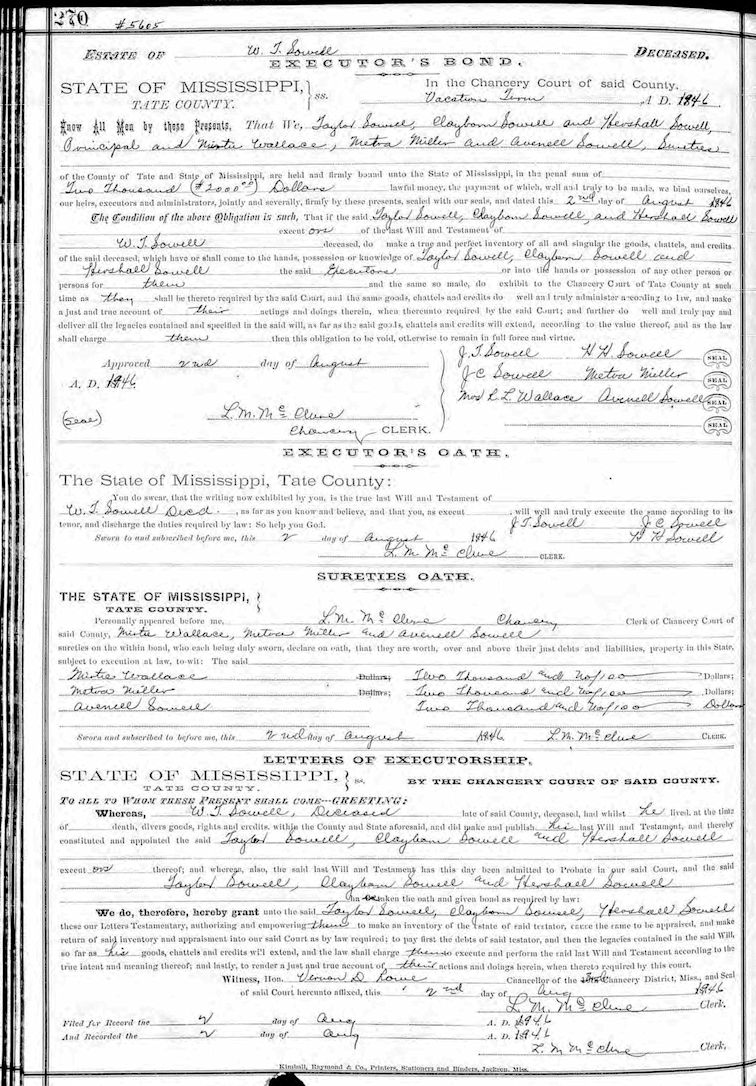 270 #5605
ESTATE OF W. T. Sowell DECEASED.
EXECUTOR'S BOND.
STATE OF MISSISSIPPI, } ss. In the Chancery Court of said County.
TATE COUNTY. Vacation Term A. D. 1946
Know All Men by these Presents, That We, Taylor Sowell, Clayborn Sowell and Hershall Sowell,
Principal and Mirtie Wallace, Metra Miller and Avenell Sowell, Sureties
of the County of Tate and State of Mississippi, are held and firmly bound unto the State of Mississippi, in the penal sum of
Two Thousand ($2000.00) Dollars lawful money, the payment of which, well and truly to be made, we bind ourselves,
our heirs, executors and administrators, jointly and severally, firmly by these presents, sealed with our seals, and dated this 2nd day of August 1946
The Condition of the above Obligation is such, That if the said Taylor Sowell, Clayborn Sowell, and Hershall Sowell
execut ors of the last Will and Testament of
W. T. Sowell deceased, do make a true and perfect inventory of all and singular the goods, chattels, and credits
of the said deceased, which have or shall come to the hands, possession or knowledge of Taylor Sowell, Clayborn Sowell and
Hershall Sowell the said Executors or into the hands or possession of any other person or
persons for them and the same so made, do exhibit to the Chancery Court of Tate County at such
time as they shall be thereto required by the said Court, and the same goods, chattels and credits do well and truly administer according to law, and make
a just and true account of their actings and doings therein, when thereunto required by the said Court; and further do well and truly pay and
deliver all the legacies contained and specified in the said will, as far as the said goods, chattels and credits will extend, according to the value thereof, and as the law
shall charge them then this obligation to be void, otherwise to remain in full force and virtue.
Approved 2nd day of August
A. D. 1946
(Seal) L. M. McClure
Chancery CLERK.
J. T. Sowell H H Sowell SEAL
J C Sowell Metra Miller SEAL
Mrs R. L. Wallace Avenell Sowell SEAL
SEAL
EXECUTOR'S OATH.
The State of Mississippi, Tate County:
You do swear, that the writing now exhibited by you, is the true last Will and Testament of
W. T. Sowell Decd., as far as you know and believe, and that you, as execut , will well and truly execute the same according to its
tenor, and discharge the duties required by law: So help you God. J T Sowell J C Sowell
Sworn to and subscribed before me, this 2 day of August 1946 H H Sowell
L. M McClure CLERK.
SURETIES OATH.
THE STATE OF MISSISSIPPI, }
TATE COUNTY.
Personally appeared before me, L. M. McClure Chancery Clerk of Chancery Court of
said County, Mirtie Wallace, Metra Miller and Avenell Sowell
sureties on the within bond, who each being duly sworn, declare on oath, that they are worth, over and above their just debts and liabilities, property in this State,
subject to execution at law, to-wit: The said
Mirtie Wallace Dollars; Two Thousand and No/100 Dollars;
Metra Miller Dollars; Two Thousand and No/100 Dollars;
Avenell Sowell Two Thousand and No/100 Dollars
Sworn and subscribed to before me, this 2nd day of August 1946 L. M. McClure CLERK.
LETTERS OF EXECUTORSHIP.
STATE OF MISSISSIPPI, } ss. BY THE CHANCERY COURT OF SAID COUNTY.
TATE COUNTY.
TO ALL TO WHOM THESE PRESENT SHALL COME—GREETING:
Whereas, W. T. Sowell, Deceased late of said County, deceased, had whilst he lived, at the time
of death, divers goods, rights and credits, within the County and State aforesaid, and did make and publish his last Will and Testament, and thereby
constituted and appointed the said Taylor Sowell, Clayborn Sowell and Hershall Sowell
execut ors thereof; and whereas, also, the said last Will and Testament has this day been admitted to Probate in our said Court, and the said
Taylor Sowell, Clayborn Sowell and Hershall Sowell
taken the oath and given bond as required by law:
We do, therefore, hereby grant unto the said Taylor Sowell, Clayborn Sowell, Hershall Sowell
these our Letters Testamentary, authorizing and empowering them to make an inventory of the estate of said testator, cause the same to be appraised, and make
return of said inventory and appraisment into our said Court as by law required; to pay first the debts of said testator, and then the legacies contained in the said Will,
so far as his goods, chattels and credits will extend, and the law shall charge them execute and perform the said last Will and Testament according to the
true intent and meaning thereof; and lastly, to render a just and true account of their actions and doings herein, when thereto required by this court.
Witness, Hon. Vernon D. Rowe Chancellor of the Chancery District, Miss., and Seal
of said Court hereunto affixed, this 2nd day of Aug 1946
L. M. McClure Clerk.
Filed for Record the 2 day of Aug A. D. 1946
And Recorded the 2 day of Aug A. D. 1946
L. M McClure Clerk.
Kimball, Raymond & Co., Printers, Stationers and Binders, Jackson, Miss.